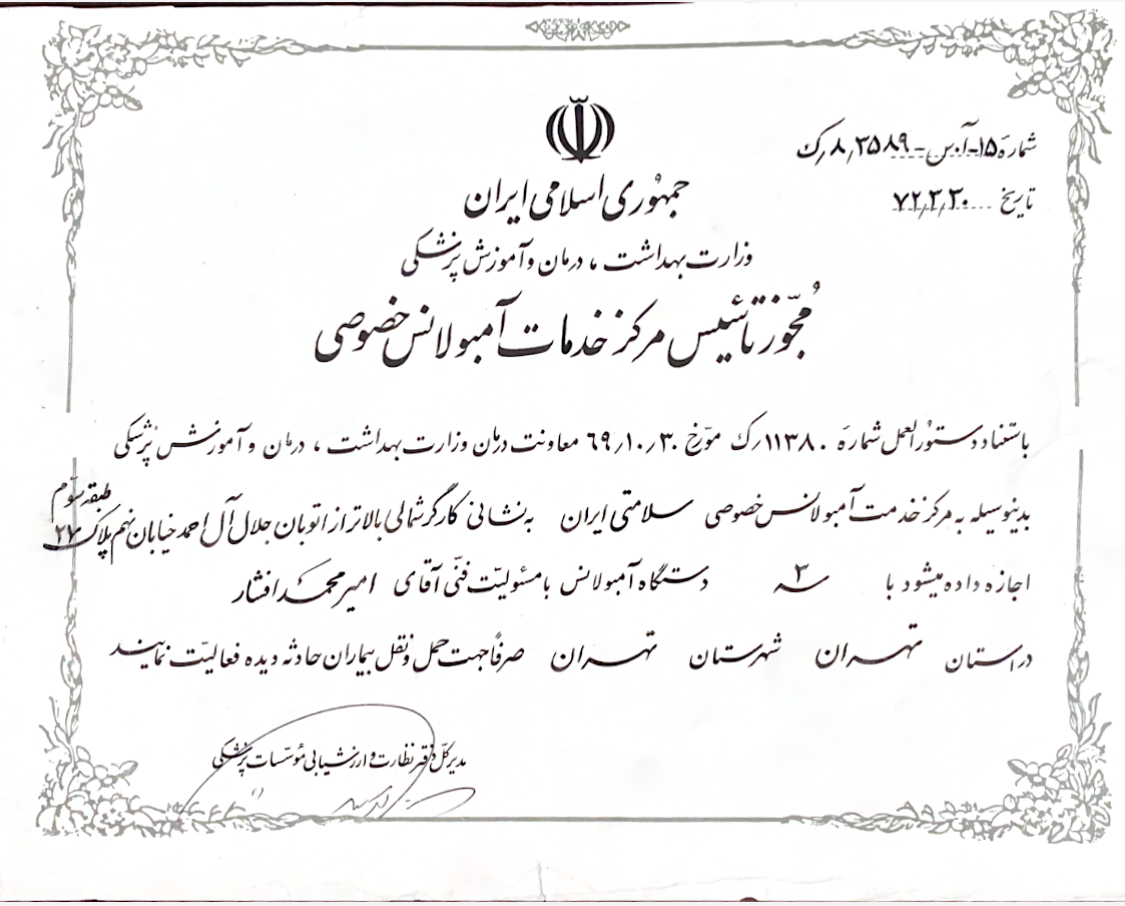 شمارهٔ ۱۵-آ.س-۸٫۳۵۸۹٫ک
تاریخ ۷۲٫۳٫۳۰
جمهوری اسلامی ایران
وزارت بهداشت ، درمان و آموزش پزشکی
مجوّز تأسیس مرکز خدمات آمبولانس خصوصی
باستناد دستورالعمل شمارهٔ ۱۱۳۸۰٫ک مورّخ ۶۹٫۱۰٫۳۰ معاونت درمان وزارت بهداشت ، درمان و آموزش پزشکی
بدینوسیله به مرکز خدمت آمبولانس خصوصی سلامتی ایران به نشانی کارگر شمالی بالاتر از اتوبان جلال آل احمد خیابان نهم پلاک ۲۷ طبقه سوّم
اجازه داده میشود با ۳ سه دستگاه آمبولانس با مسئولیّت فنّی آقای امیر محمد افشار
در استان تهران شهرستان تهران صرفاً جهت حمل و نقل بیماران حادثه دیده فعالیّت نمایند
مدیرکلّ دفتر نظارت و ارزشیابی مؤسّسات پزشکی